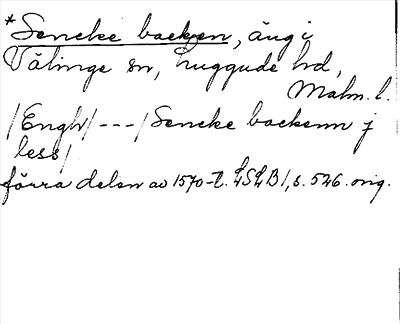 *Sencke backen, äng i
Välinge sn, Luggude hd,
Malm. l.
/Engh/ --- / Sencke backenn j
less/
förra delen av 1570-t. LSLB 1, s. 526. orig.